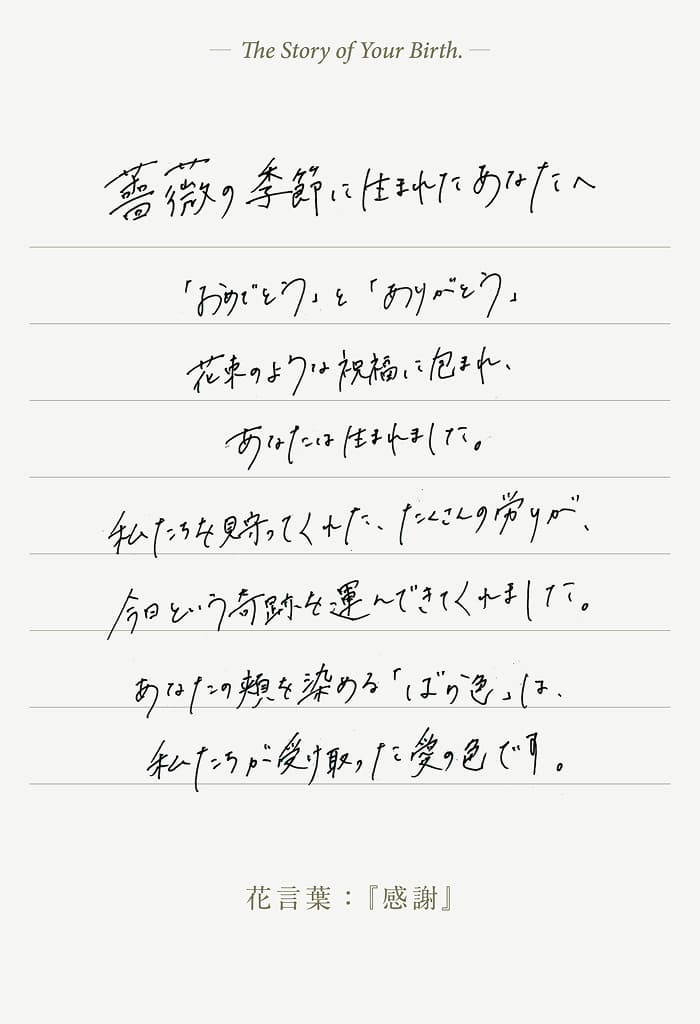 — The Story of Your Birth. —
薔薇の季節に生まれたあなたへ
「おめでとう」と「ありがとう」
花束のような祝福に包まれ、
あなたは生まれました。
私たちを見守ってくれた、たくさんの労りが、
今日という奇跡を運んできてくれました。
あなたの頬を染める「ばら色」は、
私たちが受け取った愛の色です。
花言葉：『感謝』